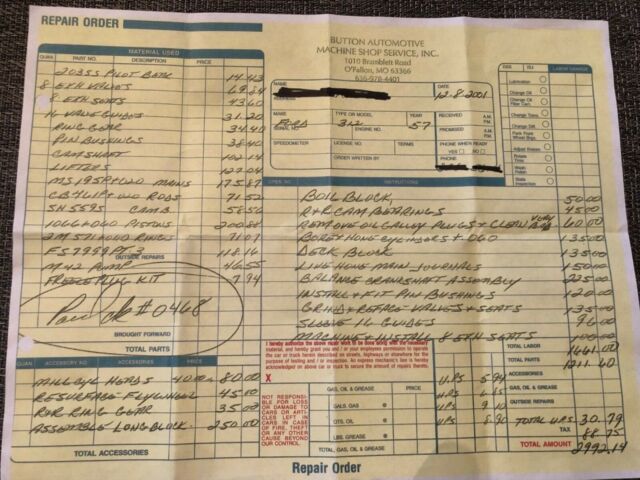 REPAIR ORDER
BUTTON AUTOMOTIVE
MACHINE SHOP SERVICE, INC.
1010 Bramblett Road
O'Fallon, MO 63366
636-978-4401
MATERIAL USED
QUAN. PART NO. DESCRIPTION PRICE
2035S PILOT BEAR. 14.43
8 EXH VALVES 69.84
8 EXH SEATS 43.60
16 VALVE GUIDES 31.20
RING GEAR 34.40
PIN BUSHINGS 38.40
CAMSHAFT 102.14
LIFTERS 127.04
MS195P+020 MAINS 175.87
CB411P+020 RODS 71.52
SH559S CAMB 58.56
1066+060 PISTONS 200.88
2M5710 RINGS 71.07
FS7999PT-3 118.16
OUTSIDE REPAIRS
M42 PUMP 46.55
FREEZE PLUG KIT 7.94
Paid Ck #0468
BROUGHT FORWARD
TOTAL PARTS
QUAN. ACCESSORIES PRICE
MILL CYL HEADS 40.00 80.00
RESURFACE FLYWHEEL 45.00
R&R RING GEAR 35.00
ASSEMBLE LONGBLOCK 250.00
TOTAL ACCESSORIES
NAME
ADDRESS
DATE
12-8-2001
MAKE TYPE OR MODEL YEAR RECEIVED A.M. P.M.
FORD 312 57
SERIAL NO. ENGINE NO. PROMISED A.M. P.M.
SPEEDOMETER LICENSE NO. TERMS PHONE WHEN READY
YES NO
ORDER WRITTEN BY PHONE
LABOR CHARGE
Lubrication
Change Oil
Change Oil Filter Cart.
Change Trans.
Change Diff.
Pack Front Wheel Brgs.
Adjust Brakes
Rotate Tires
Wash Polish
State Inspection
OPER. NO. INSTRUCTIONS
BOIL BLOCK, 50.00
R+R CAM BEARINGS 45.00
REMOVE OIL GALLOY PLUGS + CLEAN 60.00
BORE + HONE CYLINDERS + .060 135.00
DECK BLOCK 135.00
LINE HONE MAIN JOURNALS 150.00
BALANCE CRANKSHAFT ASSEMBLY 225.00
INSTALL + FIT PIN BUSHINGS 120.00
GRIND + REFACE VALVES + SEATS 135.00
SLEEVE 16 GUIDES 96.00
MACHINE + INSTALL 8 EXH SEATS 100.00
I hereby authorize the above repair work to be done along with the necessary
material, and hereby grant you and / or your employees permission to operate
the car or truck herein described on streets, highways or elsewhere for the
purpose of testing and / or inspection. An express mechanic's lien is hereby
acknowledged on above car or truck to secure the amount of repairs thereto.
X
NOT RESPONSIBLE
FOR LOSS
OR DAMAGE TO
CARS OR ARTICLES
LEFT IN
CARS IN CASE
OF FIRE, THEFT
OR ANY OTHER
CAUSE BEYOND
OUR CONTROL.
GAS, OIL & GREASE
GALS. GAS @
QTS. OIL @
LBS. GREASE @
TOTAL, GAS, OIL & GREASE
UPS 5.94
UPS
UPS 9.10
UPS 8.90
TOTAL LABOR 1661.00
TOTAL PARTS 1211.60
ACCESSORIES
GAS, OIL & GREASE
OUTSIDE REPAIRS
TOTAL UPS 30.79
TAX 88.75
TOTAL AMOUNT 2992.14
Repair Order